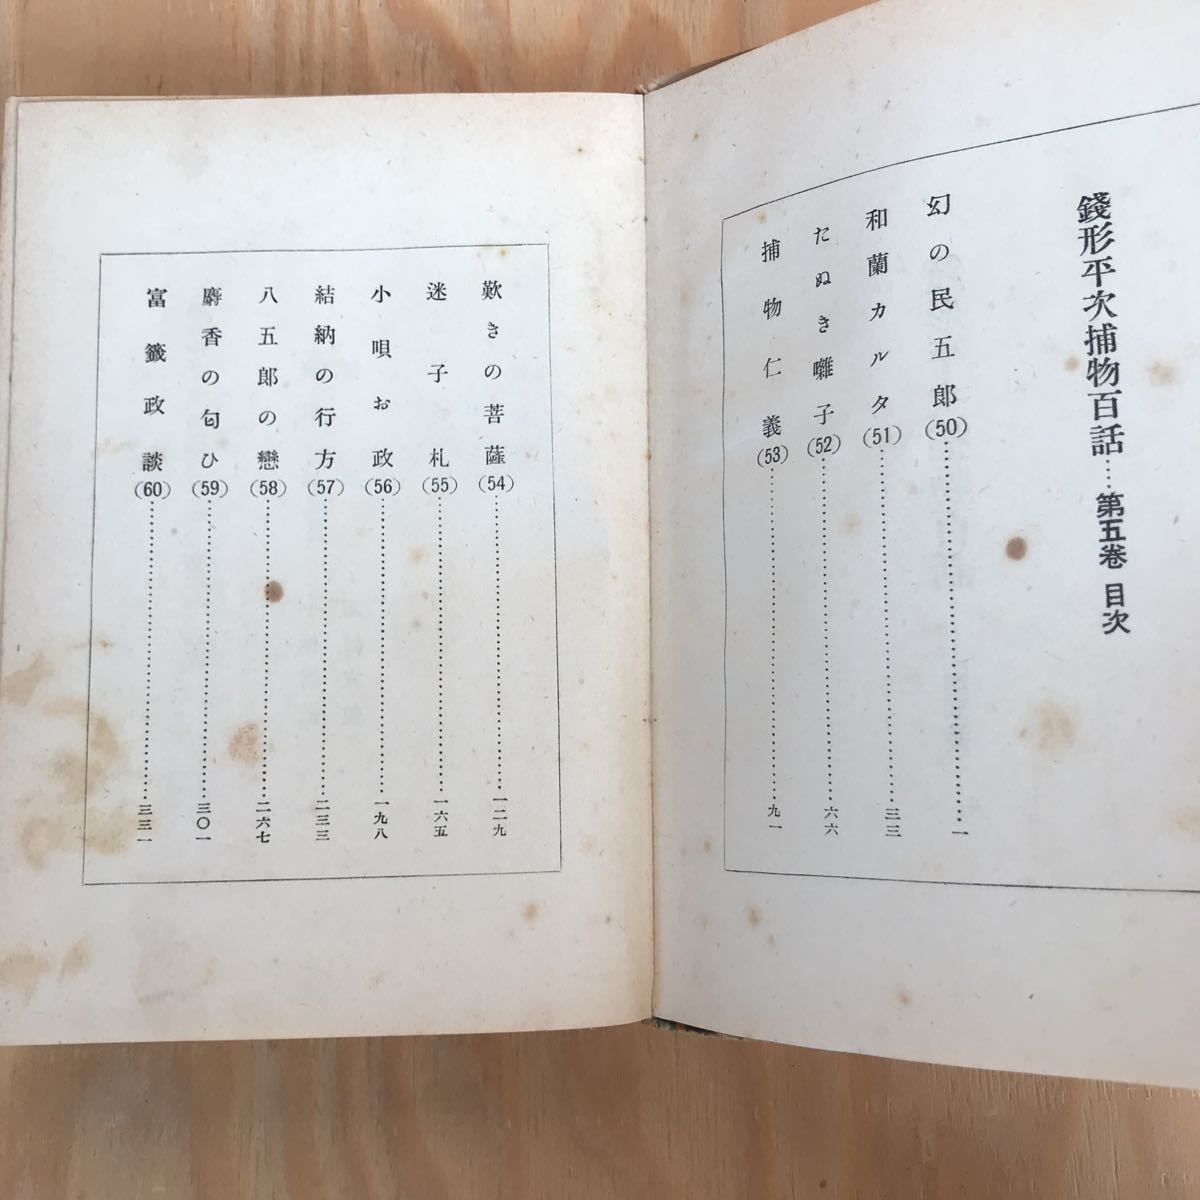 錢形平次捕物百話……第五卷 目次
幻の民五郎(50)……一
和蘭カルタ(51)……三三
たぬき囃子(52)……六六
捕物仁義(53)……九一
歎きの菩薩(54)……一二九
迷子札(55)……一六五
小唄お政(56)……一九八
結納の行方(57)……二三三
八五郎の戀(58)……二六七
麝香の匂ひ(59)……三〇一
富籤政談(60)……三三一